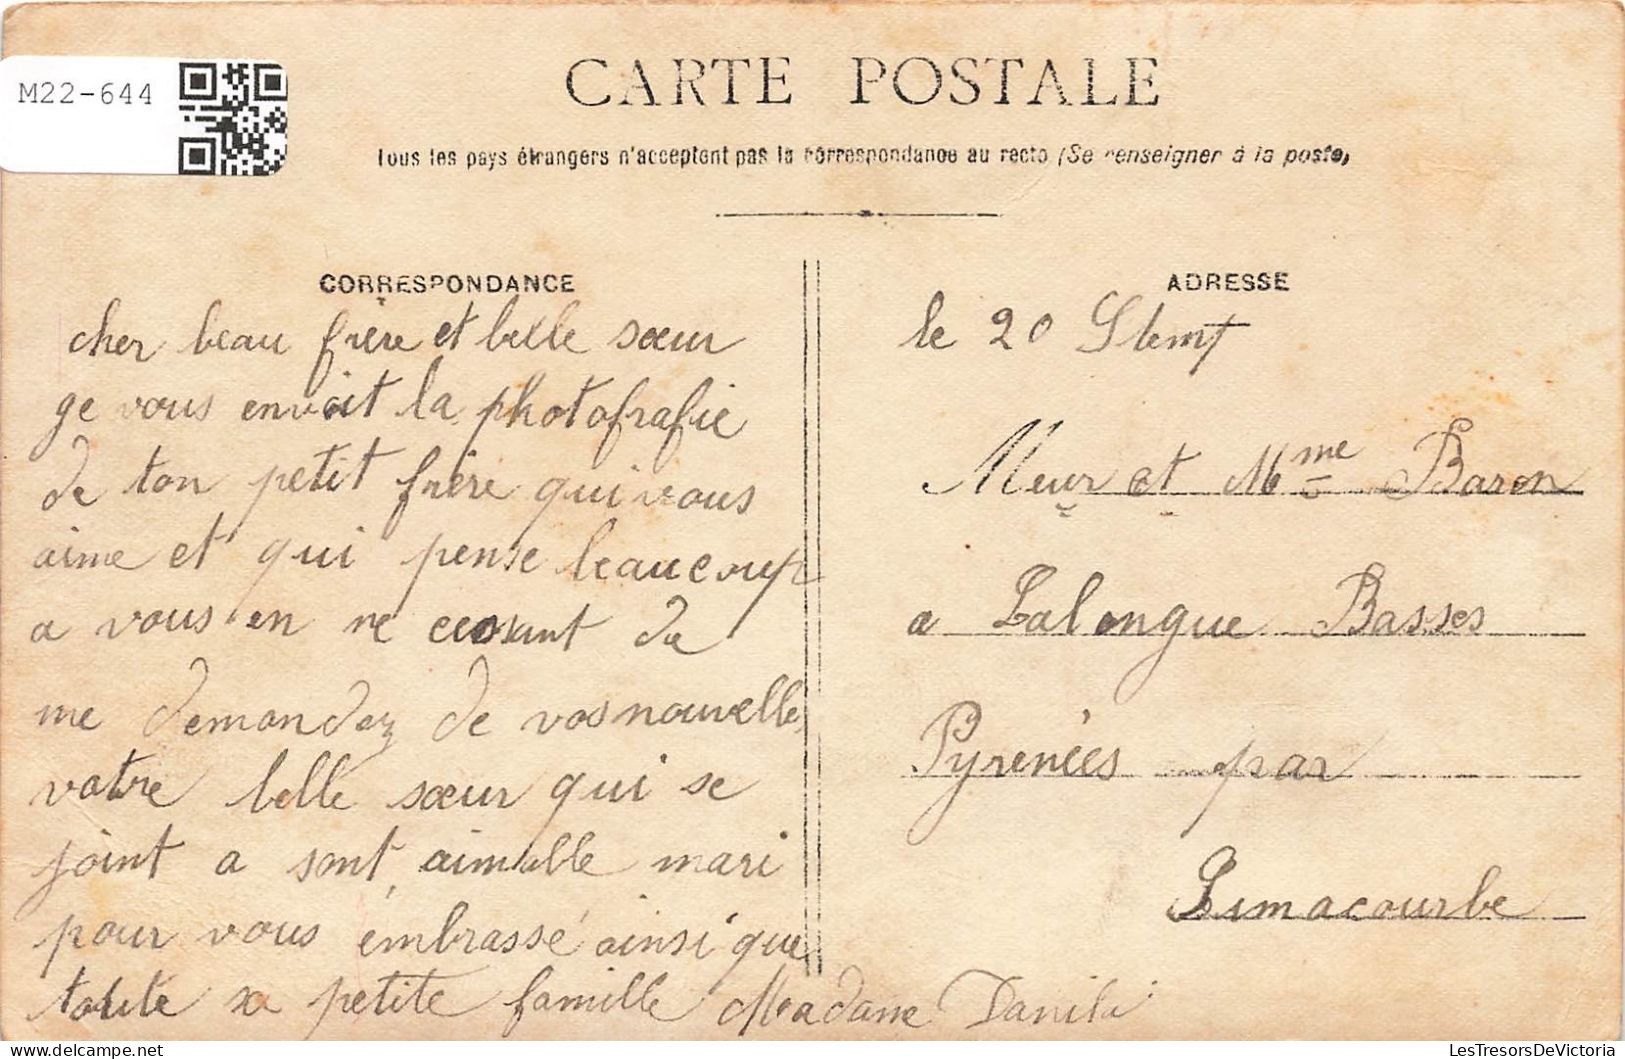 M22-644
CARTE POSTALE
Tous les pays étrangers n'acceptent pas la correspondance au recto (Se renseigner à la poste)
CORRESPONDANCE
cher beau frère et belle sœur
ge vous envoit la photofrafie
de ton petit frère qui vous
aime et qui pense beaucoup
a vous en ne de
me demandez de vos nouvelle
votre belle sœur qui se
joint a sont aimable mari
pour vous émbrassé ainsi que
toute sa petite famille Madame Danila
ADRESSE
le 20 Stemt
Meur et Mme Baron
a Lalongue Basses
Pyrenées par
Simacourbe
LesTresorsDeVictoria